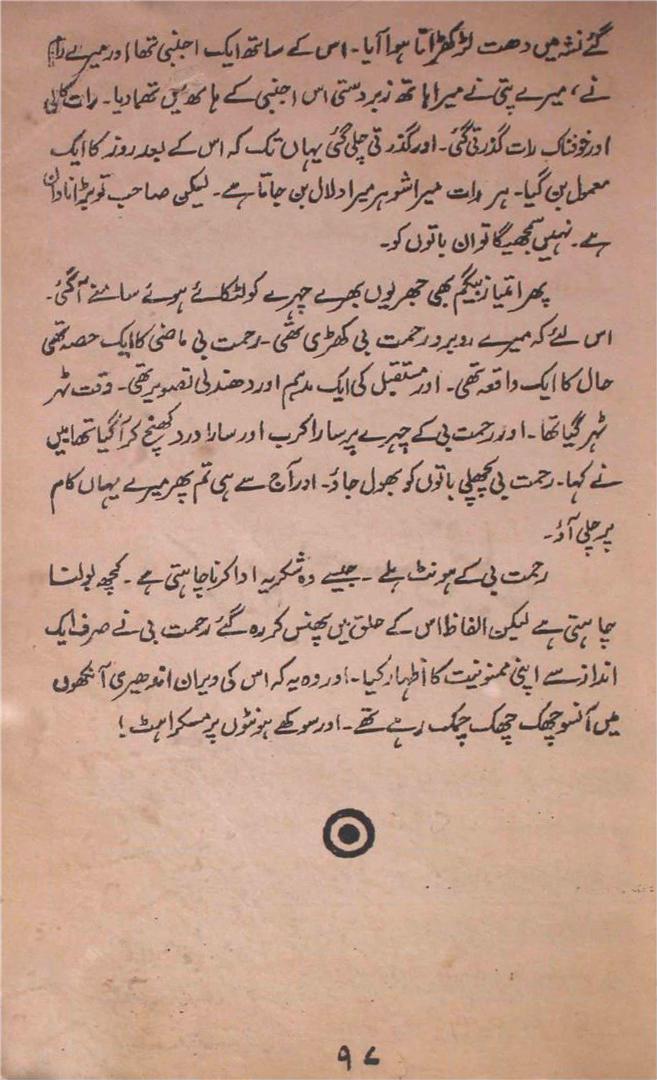 گئے نشہ میں دھت لڑکھڑاتا ہوا آیا۔ اس کے ساتھ ایک اجنبی تھا اور میرے رام
نے، میرے پتی نے میرا ہاتھ زبردستی اس اجنبی کے ہاتھ میں تھما دیا۔ رات کالی
اور خوفناک رات گذرتی گئی۔ اور گذرتی چلی گئی یہاں تک کہ اس کے بعد روز کا ایک
معمول بن گیا۔ ہر رات میرا شوہر میرا دلال بن جاتا ہے۔ لیکن صاحب تو بڑا نادان
ہے۔ نہیں سمجھیگا تو ان باتوں کو۔
پھر امتیاز بیگم بھی جھریوں بھرے چہرے کو لٹکائے ہوئے سامنے آگئی۔
اس لئے کہ میرے روبرو رحمت بی کھڑی تھی۔ رحمت بی ماضی کا ایک حصہ تھی
حال کا ایک واقعہ تھی۔ اور مستقبل کی ایک مدہم اور دھندلی تصویر تھی۔ وقت ٹہر
ٹہر گیا تھا۔ اور رحمت بی کے چہرے پر سارا کرب اور سارا درد کھنچ کر آگیا تھا میں
نے کہا۔ رحمت بی پچھلی باتوں کو بھول جاؤ۔ اور آج سے ہی تم پھر میرے یہاں کام
پر چلی آؤ۔
رحمت بی کے ہونٹ ہلے۔ جیسے وہ شکریہ ادا کرنا چاہتی ہے۔ کچھ بولنا
چاہتی ہے لیکن الفاظ اس کے حلق میں پھنس کر رہ گئے رحمت بی نے صرف ایک
انداز سے اپنی ممنونیت کا اظہار کیا۔ اور وہ یہ کہ اس کی ویران اندھیری آنکھوں
میں آنسو چھک چھک چمک رہے تھے۔ اور سوکھے ہونٹوں پر مسکراہٹ!
۹۷